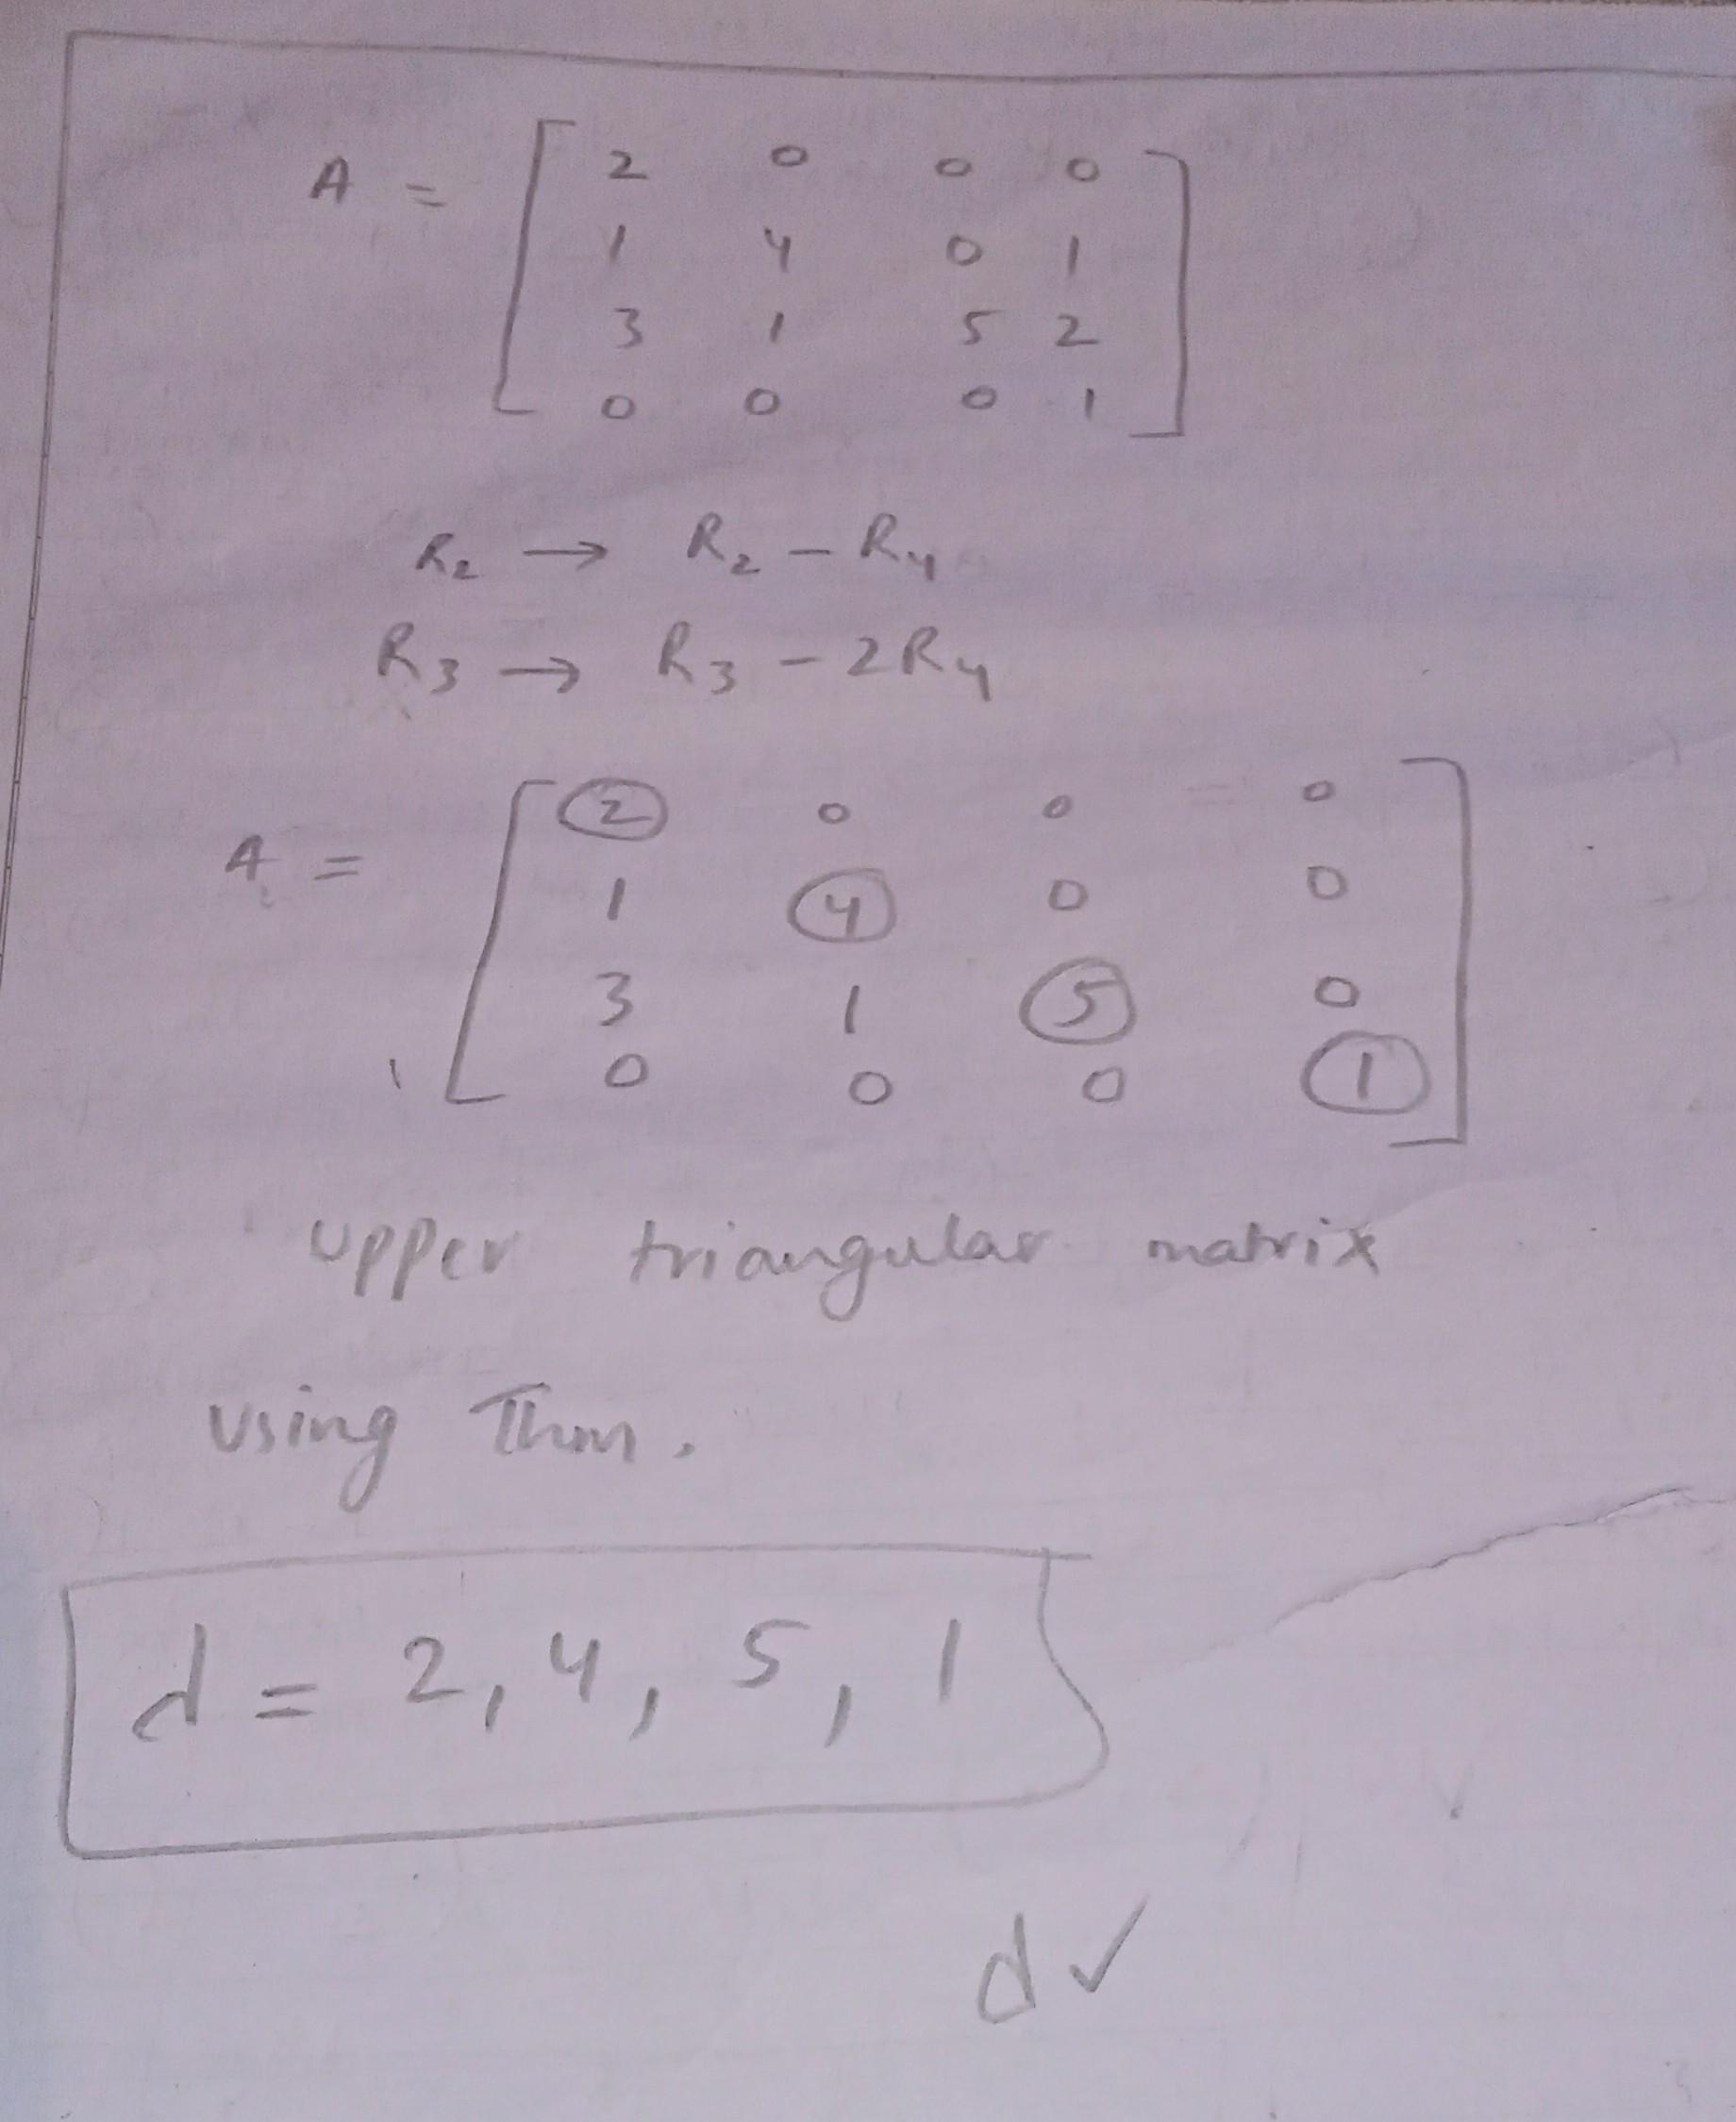 A = [ 2 0 0 0
1 4 0 1
3 1 5 2
0 0 0 1 ]
R₂ → R₂ - R₄
R₃ → R₃ - 2R₄
A = [ 2 0 0 0
1 4 0 0
3 1 5 0
0 0 0 1 ]
upper triangular matrix
using Thm.
d = 2, 4, 5, 1
d ✓